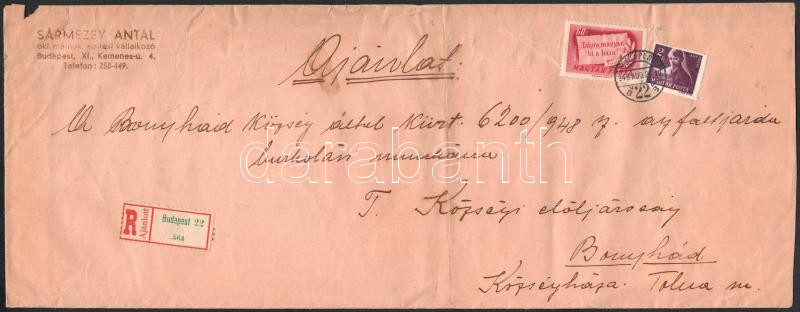 SÁRMEZEY ANTAL
okl. mérnök, építési vállalkozó
Budapest, XI., Kemenes-u. 4.
Telefon: 258-449.
Ajánlat.
60
Talpra magyar
hí a haza
MAGYAR POSTA
2
MAGYAR POSTA
22
A Bonyhád Község által kiírt 6200/948 sz. aszfaltjárda
burkolási munkára
T. Községi elöljáróság
Bonyhád
Községháza. Tolna m.
R
Ajánlott
Budapest 22
564
darabanth